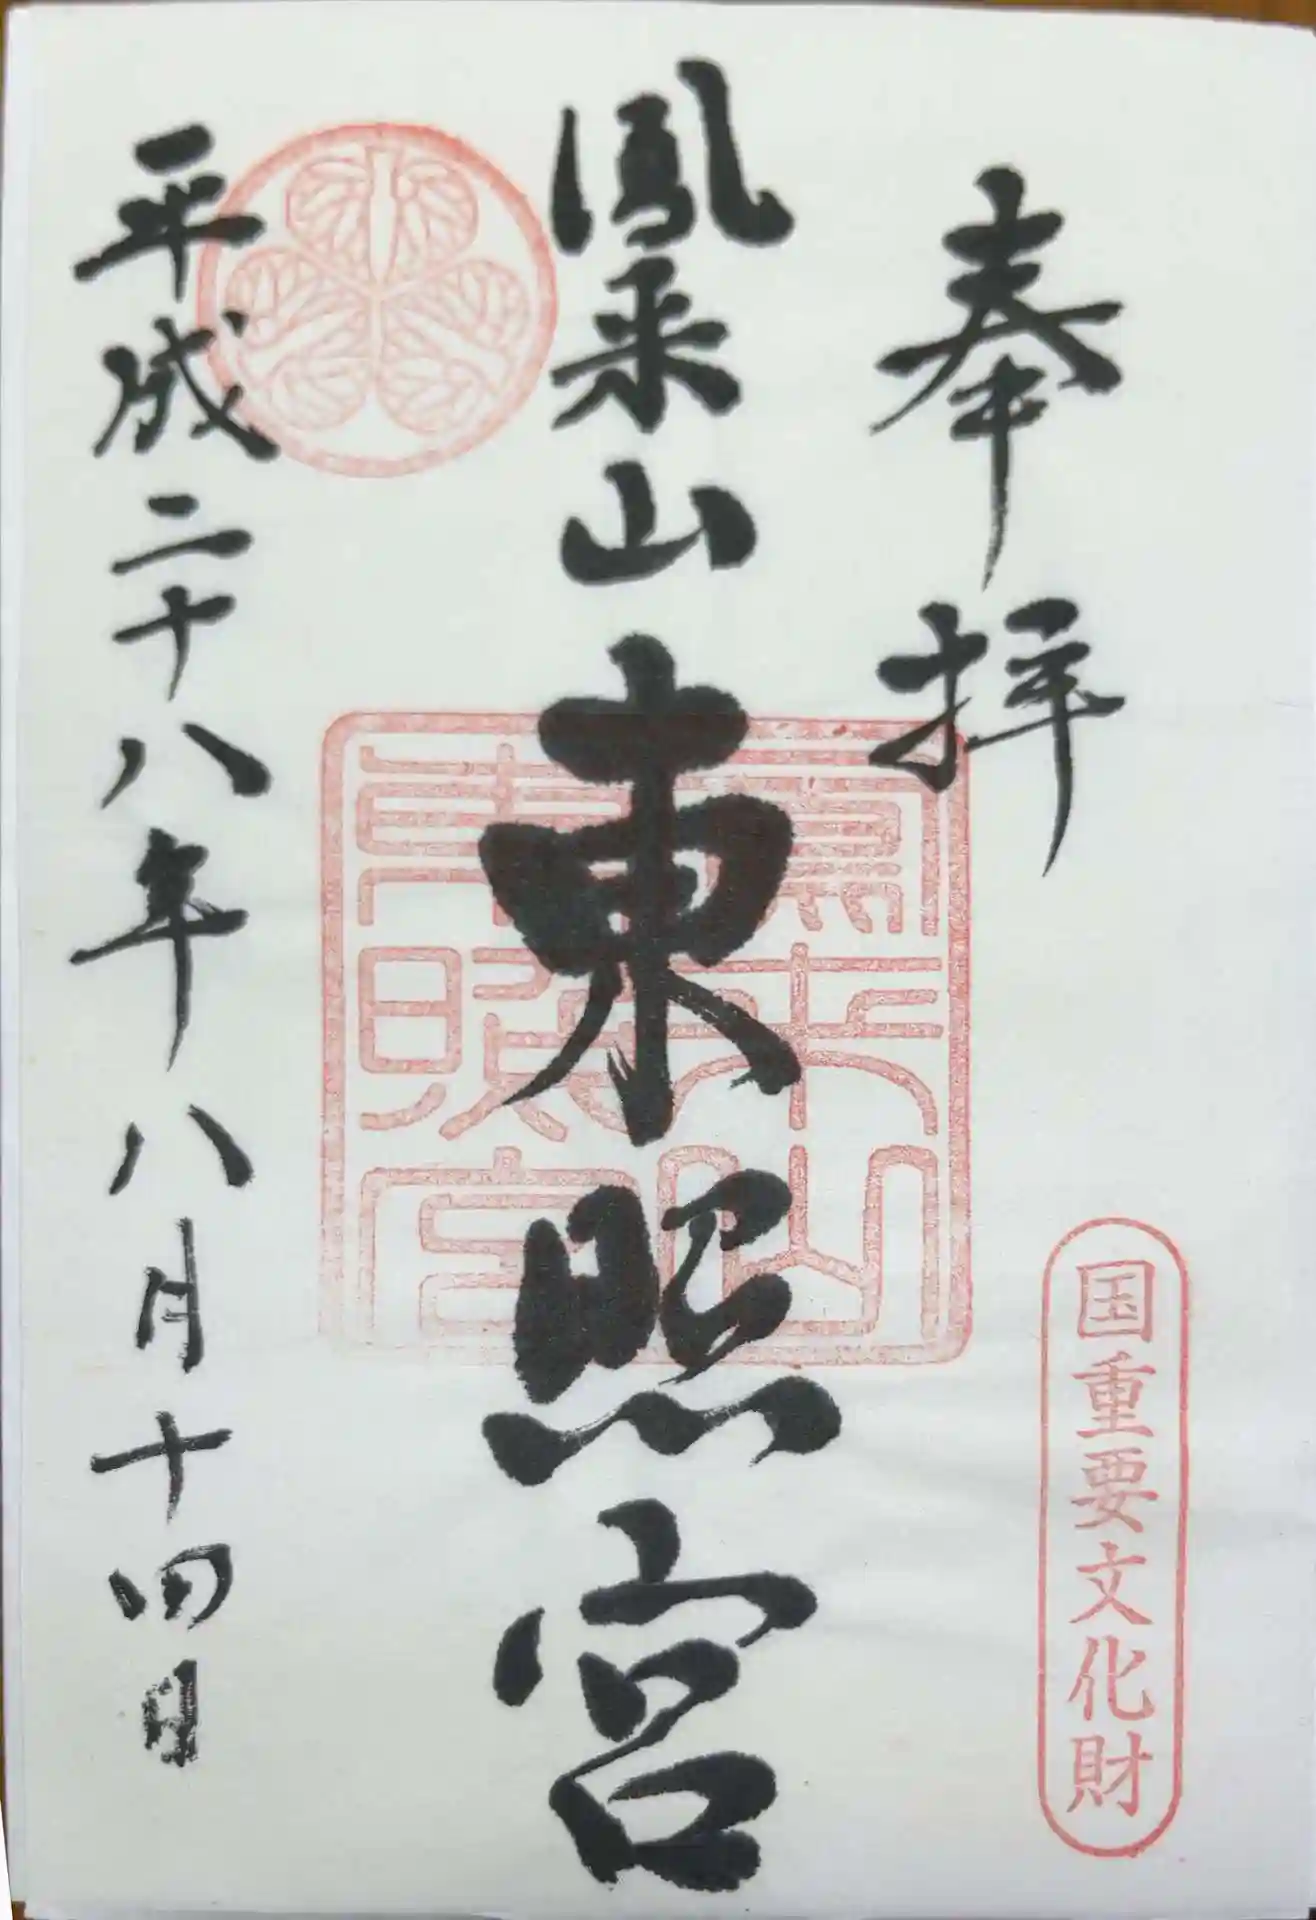 奉拝
国重要文化財
鳳来山東照宮
鳳来山
東照宮
平成二十八年八月十四日